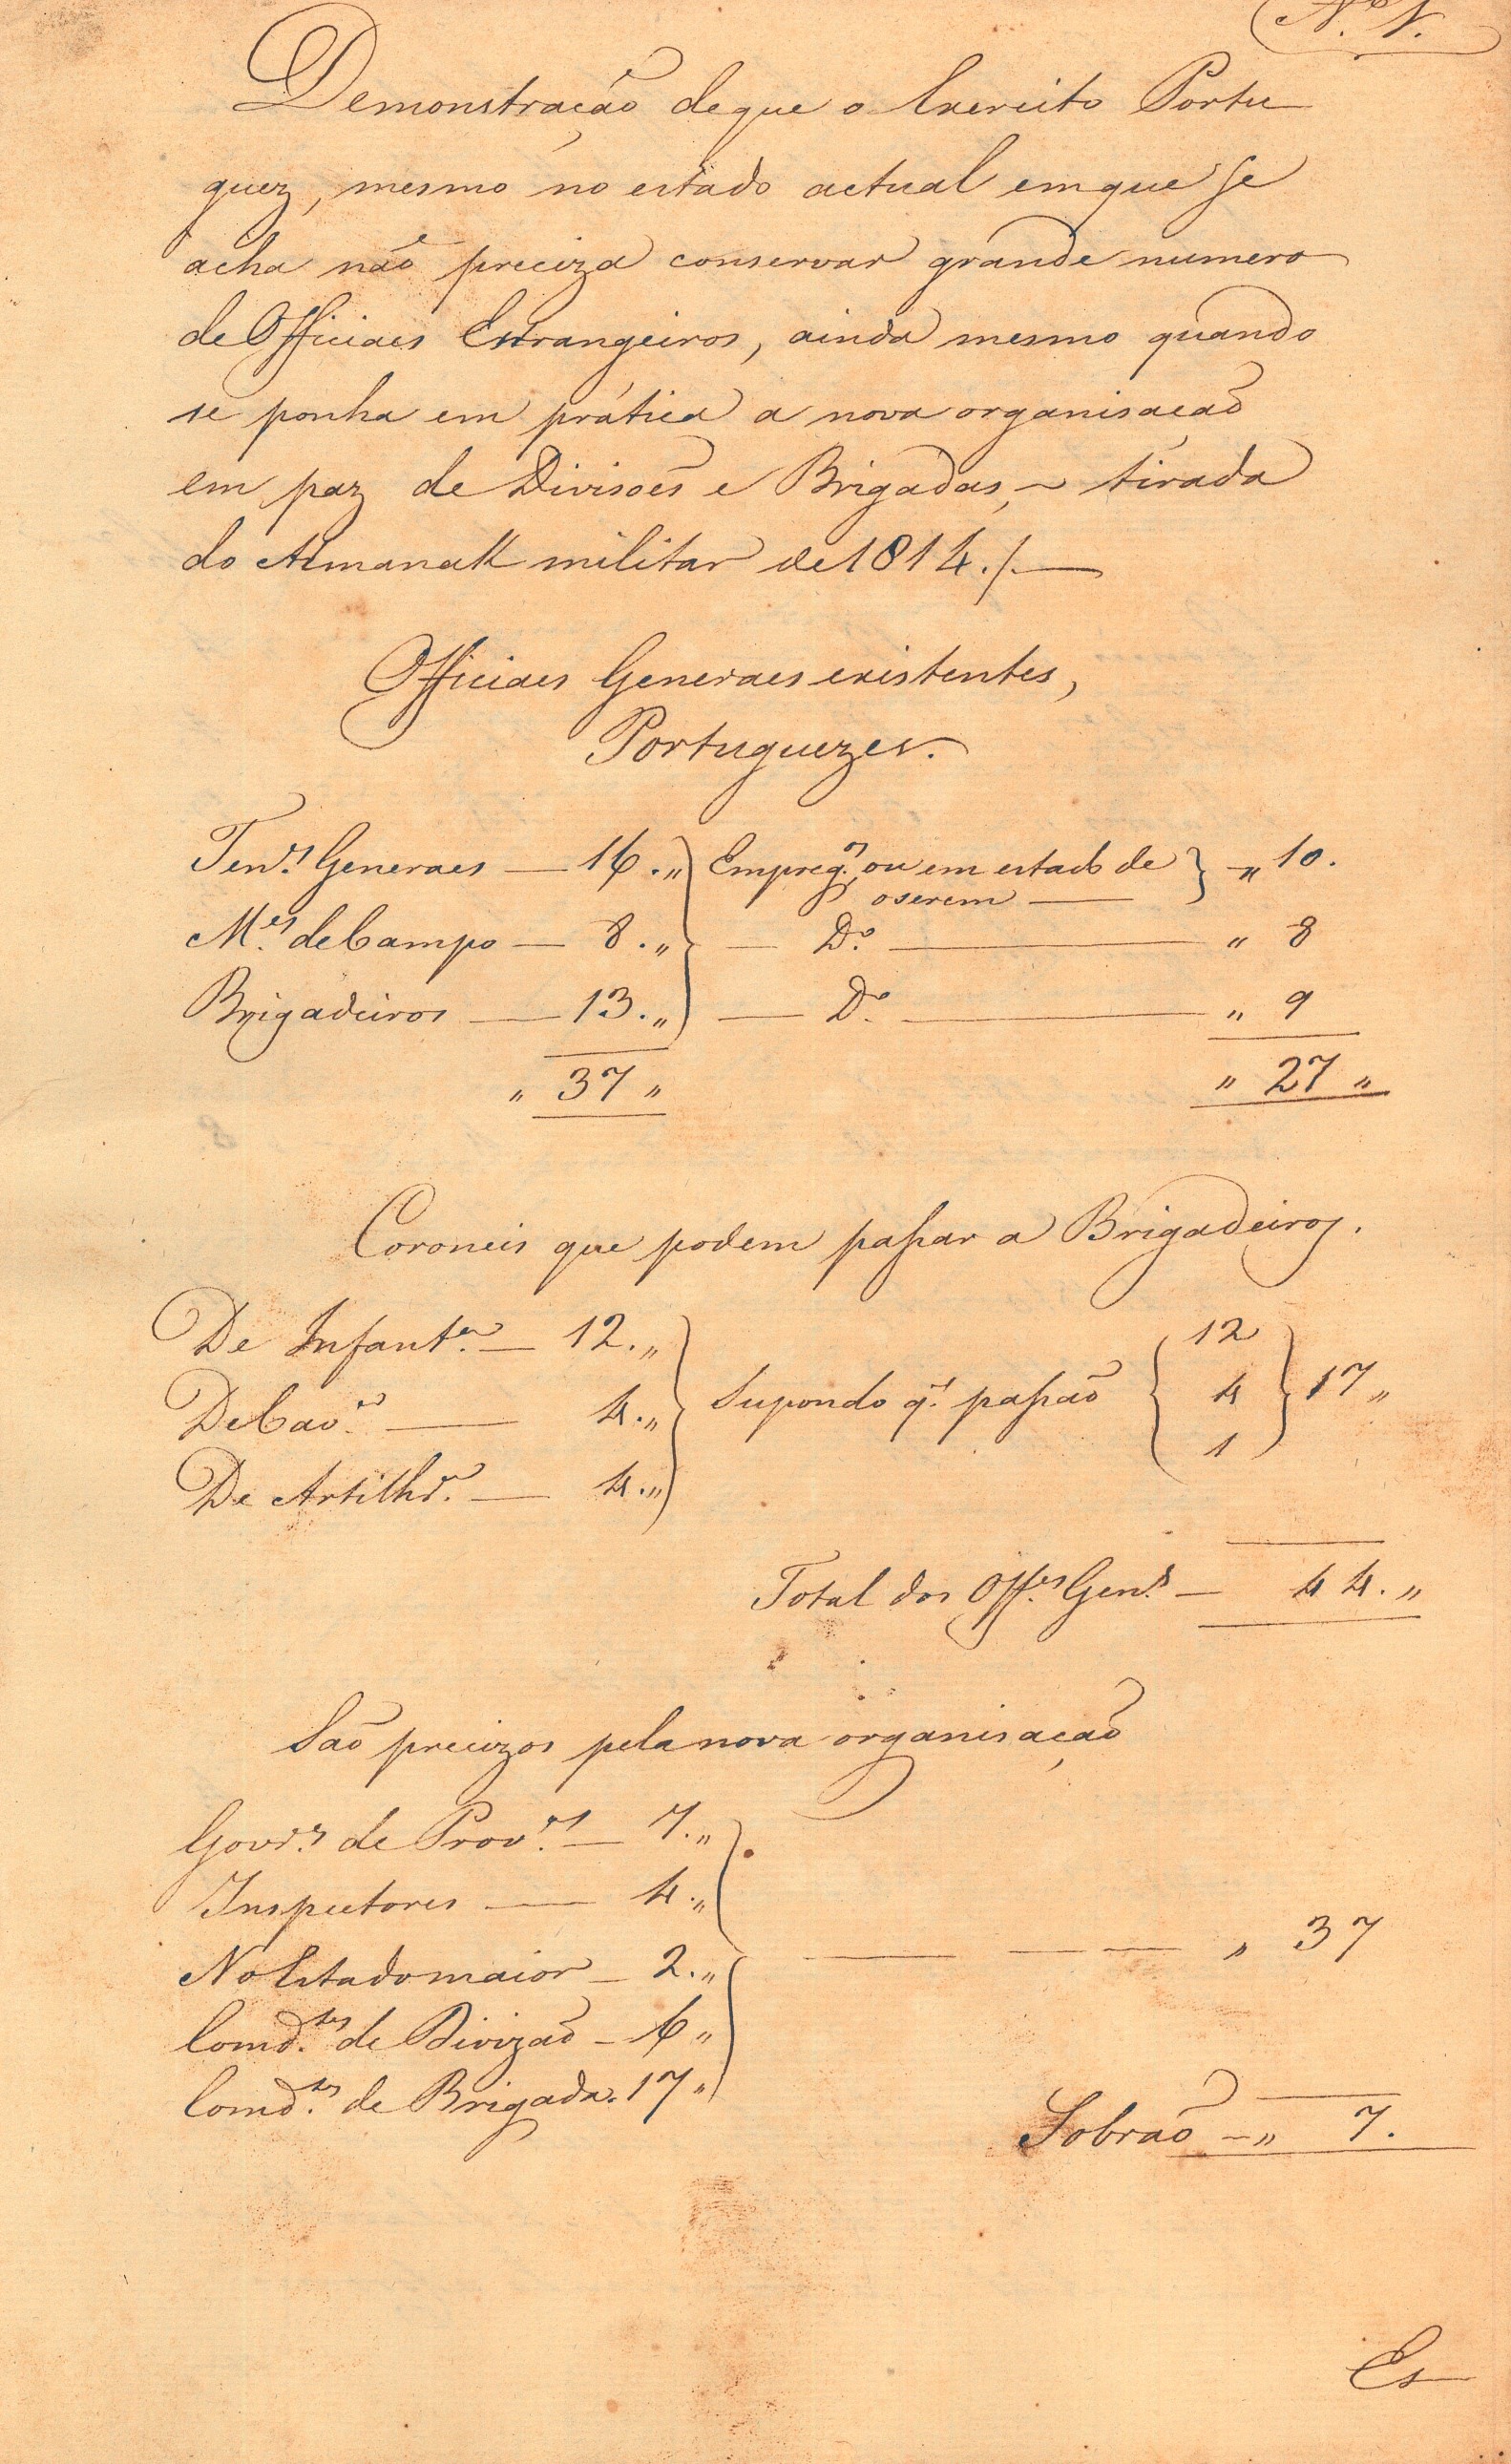 N.º 1.
Demonstração deque o Exercito Portu
guez, mesmo no estado actual emque se
acha não preciza conservar grande numero
de Officiaes Estrangeiros, ainda mesmo quando
se ponha em prática a nova organisação
em paz de Divisoẽs e Brigadas, ~ tirada
do Almanak militar de 1814./.—
Officiaes Generaes existentes,
Portuguezes.
Ten.es Generaes — 16.,, Empreg.os, ou em estado de
oserem — ,, 10.
M.es de Campo — 8.,, — D.º — ,, 8
Brigadeiros — 13.,, — D.º — ,, 9
,, 37 ,, ,, 27 ,,
Coroneis que podem passar a Brigadeiros.
De Infant.ra — 12.,, 12
De Cav.ra — 4.,, Supondo q.' passaõ 4 17,,
De Artilhr.a — 4.,, 1
Total dos Off.es Gen.s — 44.,,
Saõ precizos pela nova organisação
Govr.es de Prov.as — 7.,,
Inspectores — 4.,,
No Estado maior — 2.,, — — — ,, 37
Comd.tes de Divizaõ — 6,,
Comd.tes de Brigada. 17,,
Sobraõ —,, 7.
Es